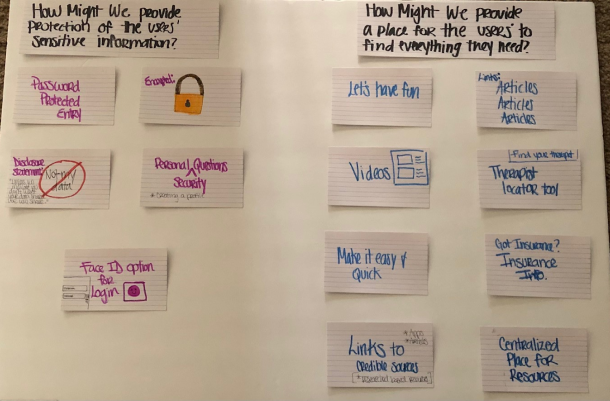 How Might We provide
protection of the users'
sensitive information?
Password
Proteded
Entry
Encrypted:
Disclosure
Statement:
Not my
data
Personal Questions
Security
Face ID option
for
Login
How Might We provide
a place for the users to
find everything they need?
Let's have fun
Links:
Articles
Articles
Articles
Videos
Find your therapist
Therapist
locator tool
Make it easy &
Quick
Got Insurance?
Insurance
Info.
*Apps
Links to
credible sources
Centralized
Place for
Resources